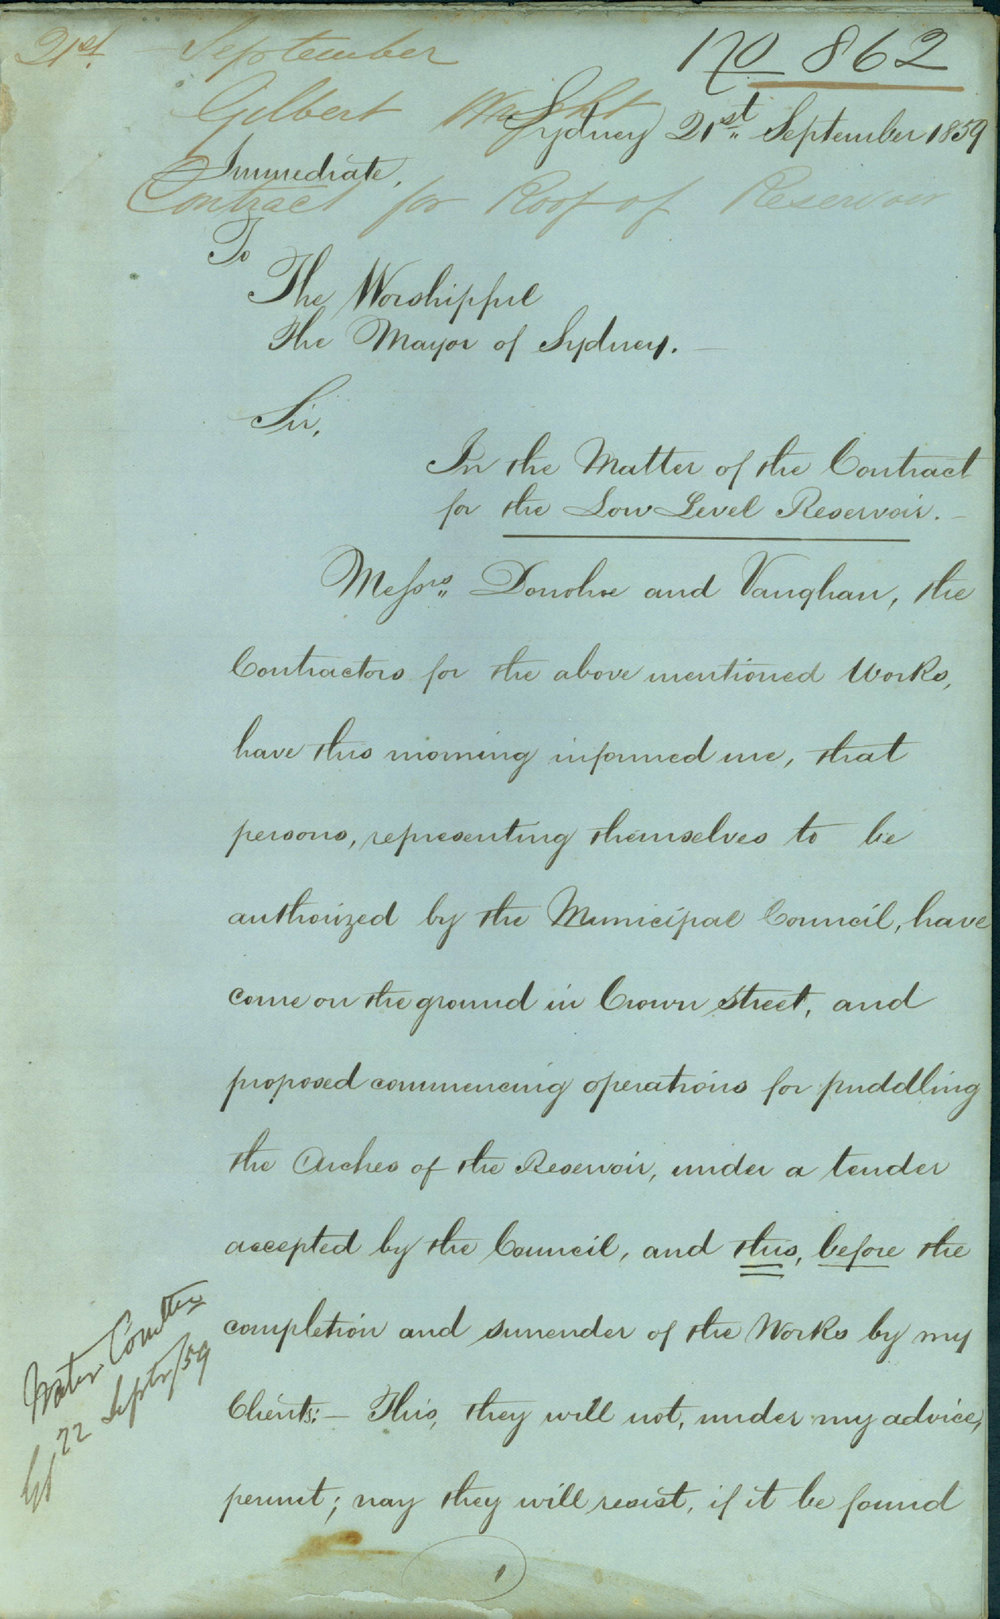 21st September
No 862
Gilbert Wright
Sydney 21st September 1859
Immediate,
Contract for Roof of Reservoir
To
The Worshipful
The Mayor of Sydney. —
Sir,
In the Matter of the Contract
for the Low Level Reservoir. —
Messrs. Donohoe and Vaughan, the
Contractors for the above mentioned Works,
have this morning informed me, that
persons, representing themselves to be
authorized by the Municipal Council, have
come on the ground in Crown Street, and
proposed commencing operations for puddling
the Arches of the Reservoir, under a tender
accepted by the Council, and this, before the
completion and surrender of the Works by my
Clients: — This, they will not, under my advice,
permit; nay they will resist, if it be found
Water Comttee
22 Septr/59
1